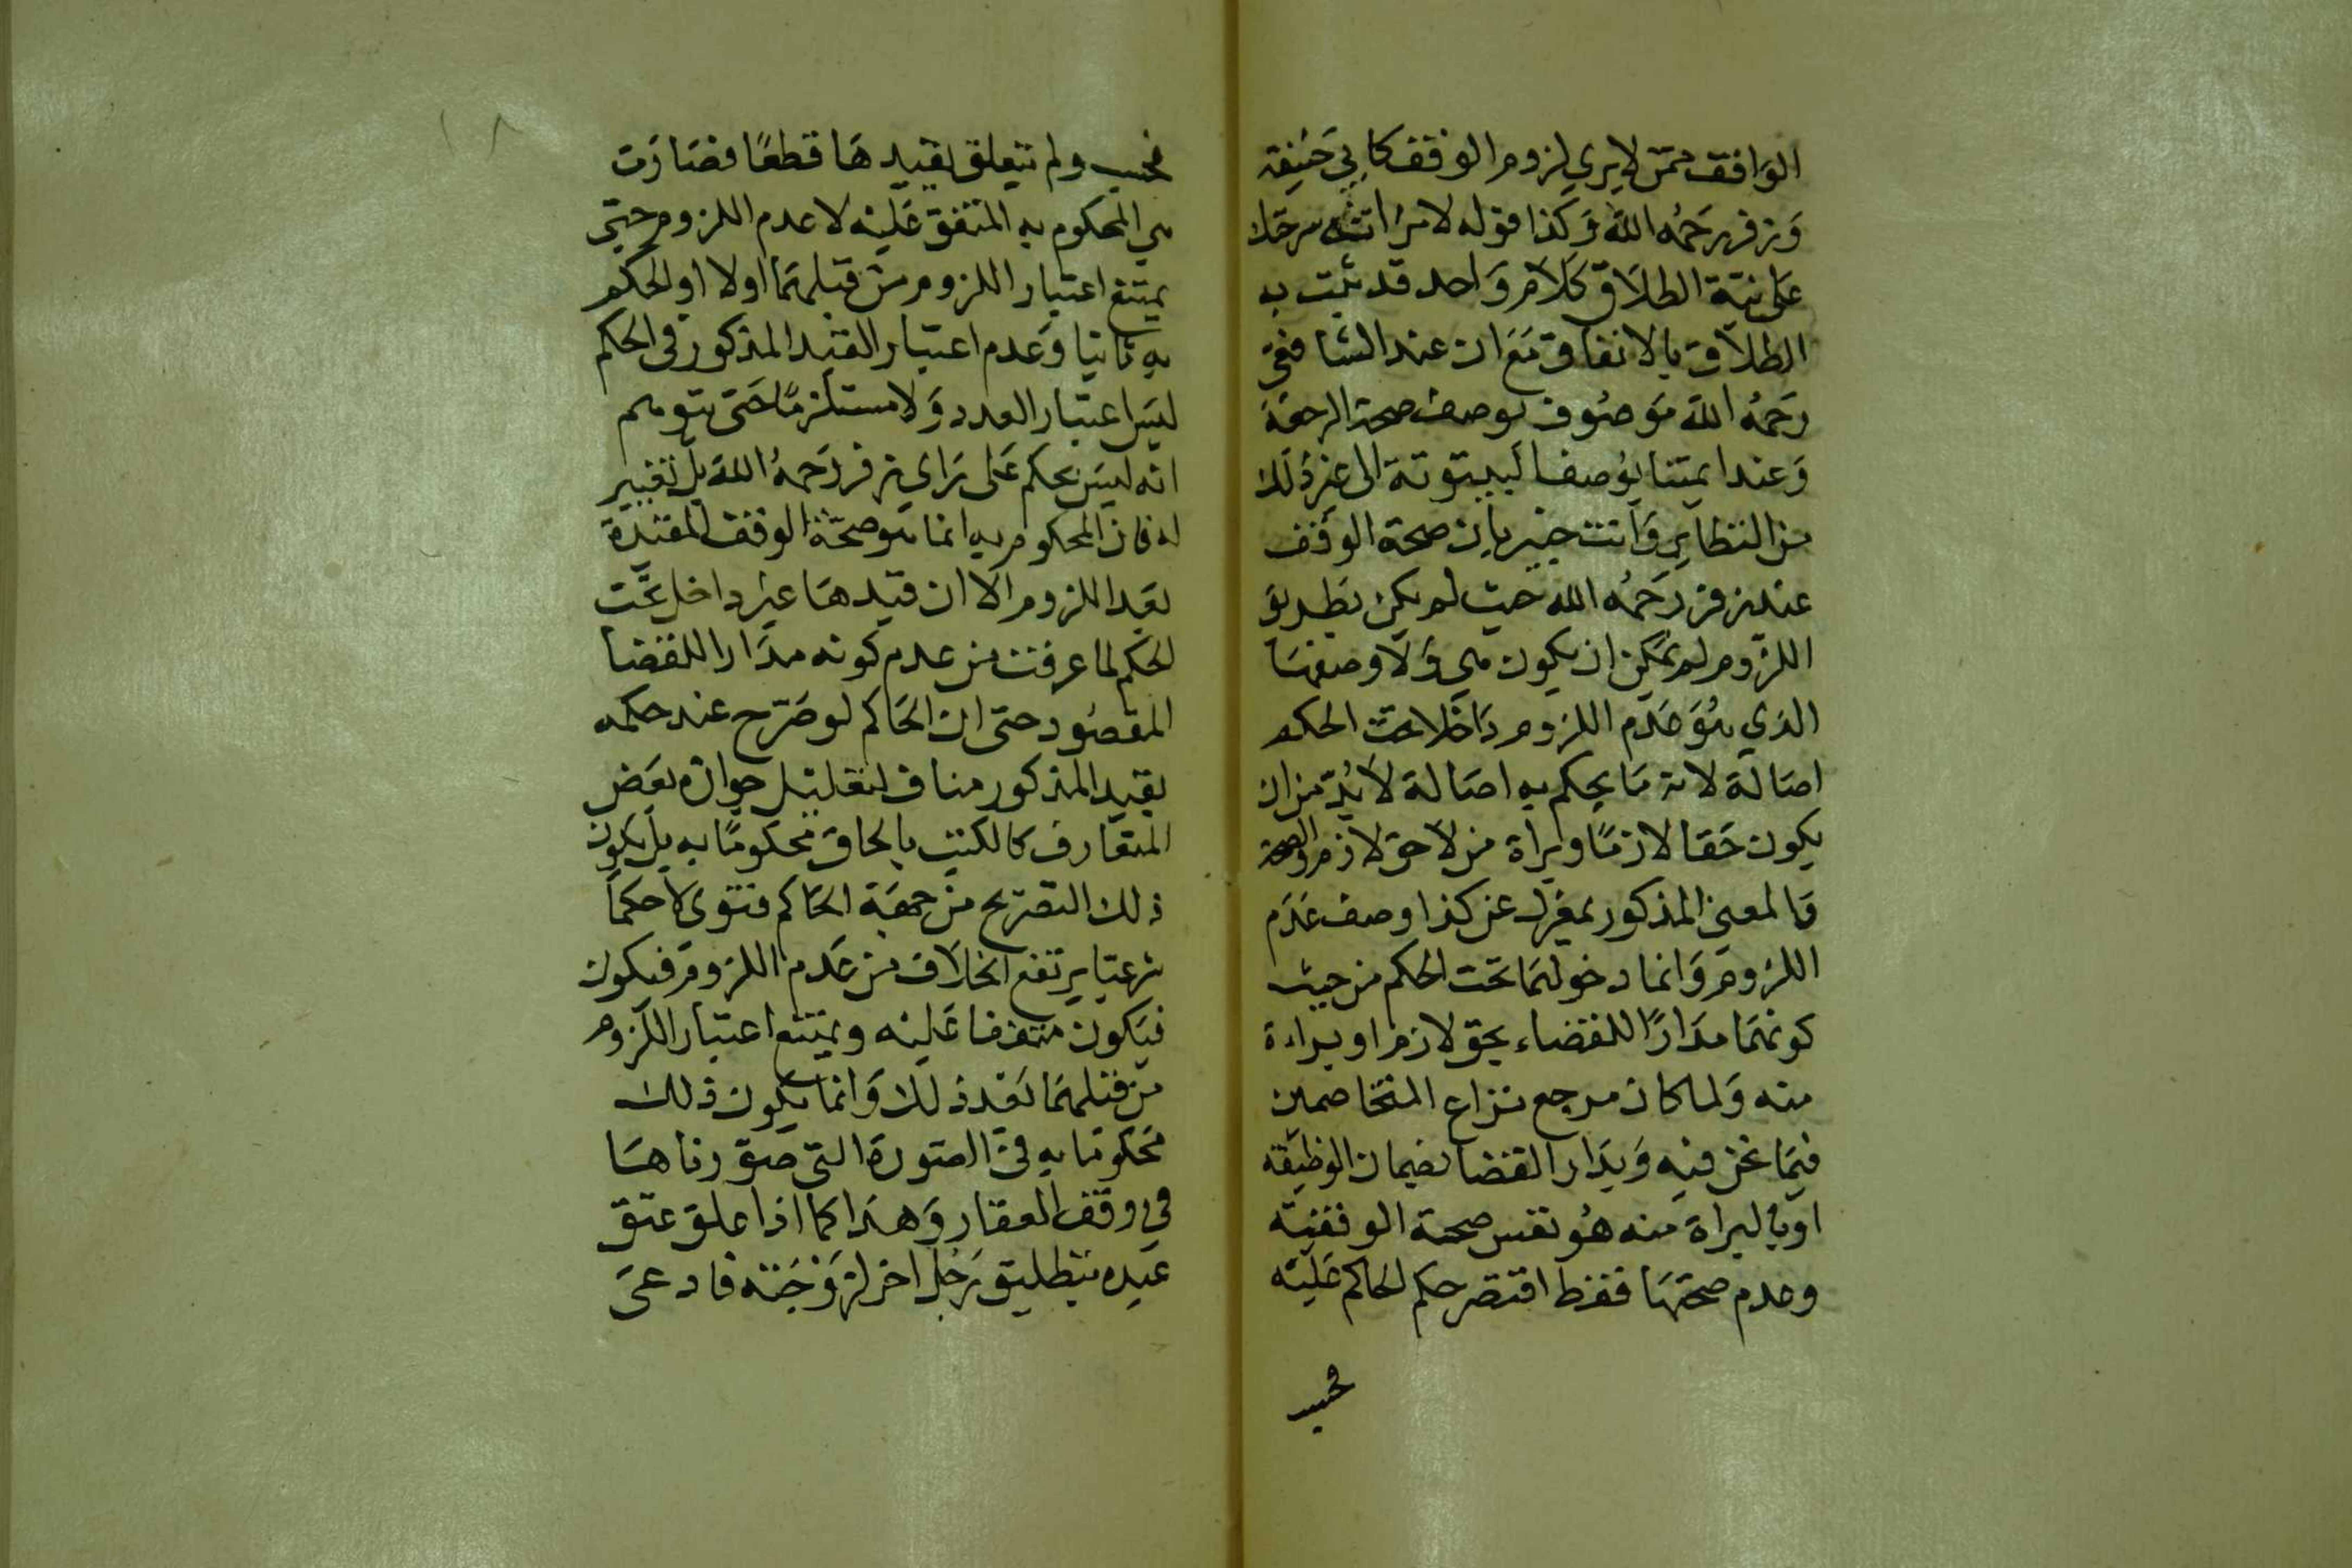 الواقف ممن لا يرى لزوم الوقف كابي حنيفة
وزفر رحمه الله وكذا قوله لامراته انت سرحتك
على نية الطلاق كلام واحد قد ثبت به
الطلاق بالاتفاق مع ان عند الشافعي
رحمه الله موصوف بوصف صحة الرجعة
وعند ايمتنا بوصف البينونة الى غير ذلك
من النظاير وانت خبير بان صحة الوقف
عند زفر رحمه الله حيث لم يكن بطريق
اللزوم لم يمكن ان يكون هي ولا وصفها
الذي هو عدم اللزوم داخلا تحت الحكم
اصالة لانه ما يحكم به اصالة لا بد من ان
يكون حقا لازما او براة من لاحق لازم والصحة
والمعنى المذكور بمعزل عن كذا وصف عدم
اللزوم وانما دخولهما تحت الحكم من حيث
كونهما مدارا للقضاء بحق لازم او براءة
منه ولما كان مرجع نزاع المتخاصمين
فيما نحن فيه ومدار القضا بضمان الوظيفة
او بالبراة منه هو نفس صحة الوقفية
وعدم صحتها فقط اقتصر حكم الحاكم عليه
فحسب
فحسب ولم يتعلق بقيدها قطعا فصارت
هي المحكوم به المتفق عليه لا عدم اللزوم حتى
يمتنع اعتبار اللزوم من قبلهما اولا او الحكم
به ثانيا وعدم اعتبار القيد المذكور في الحكم
ليس اعتبار العدد ولا مستلزما حتى يتوهم
انه ليس بحكم على راى زفر رحمه الله بل تغيير
له فان المحكوم به انما هو صحة الوقف المقيدة
بعد اللزوم الا ان قيدها غير داخل تحت
الحكم لما عرفت من عدم كونه مدارا للقضا
المقصود حتى ان الحاكم لو صرح عند حكمه
بقيد المذكور مناف لتعليل جوازه بعض
المتعارف كالكتب بالحاق محكوما به بل يكون
ذلك التصريح من جهة الحاكم فتوى لا حكما
شرعيا يرتفع الخلاف من عدم اللزوم فيكون
فيكون متفقا عليه ويمتنع اعتبار اللزوم
من قبلهما بعد ذلك وانما يكون ذلك
محكوما به في الصورة التي صورناها
في وقف العقار وهذا كما اذا علق عتق
عبده بتطليق رجل اخر لزوجته فادعى